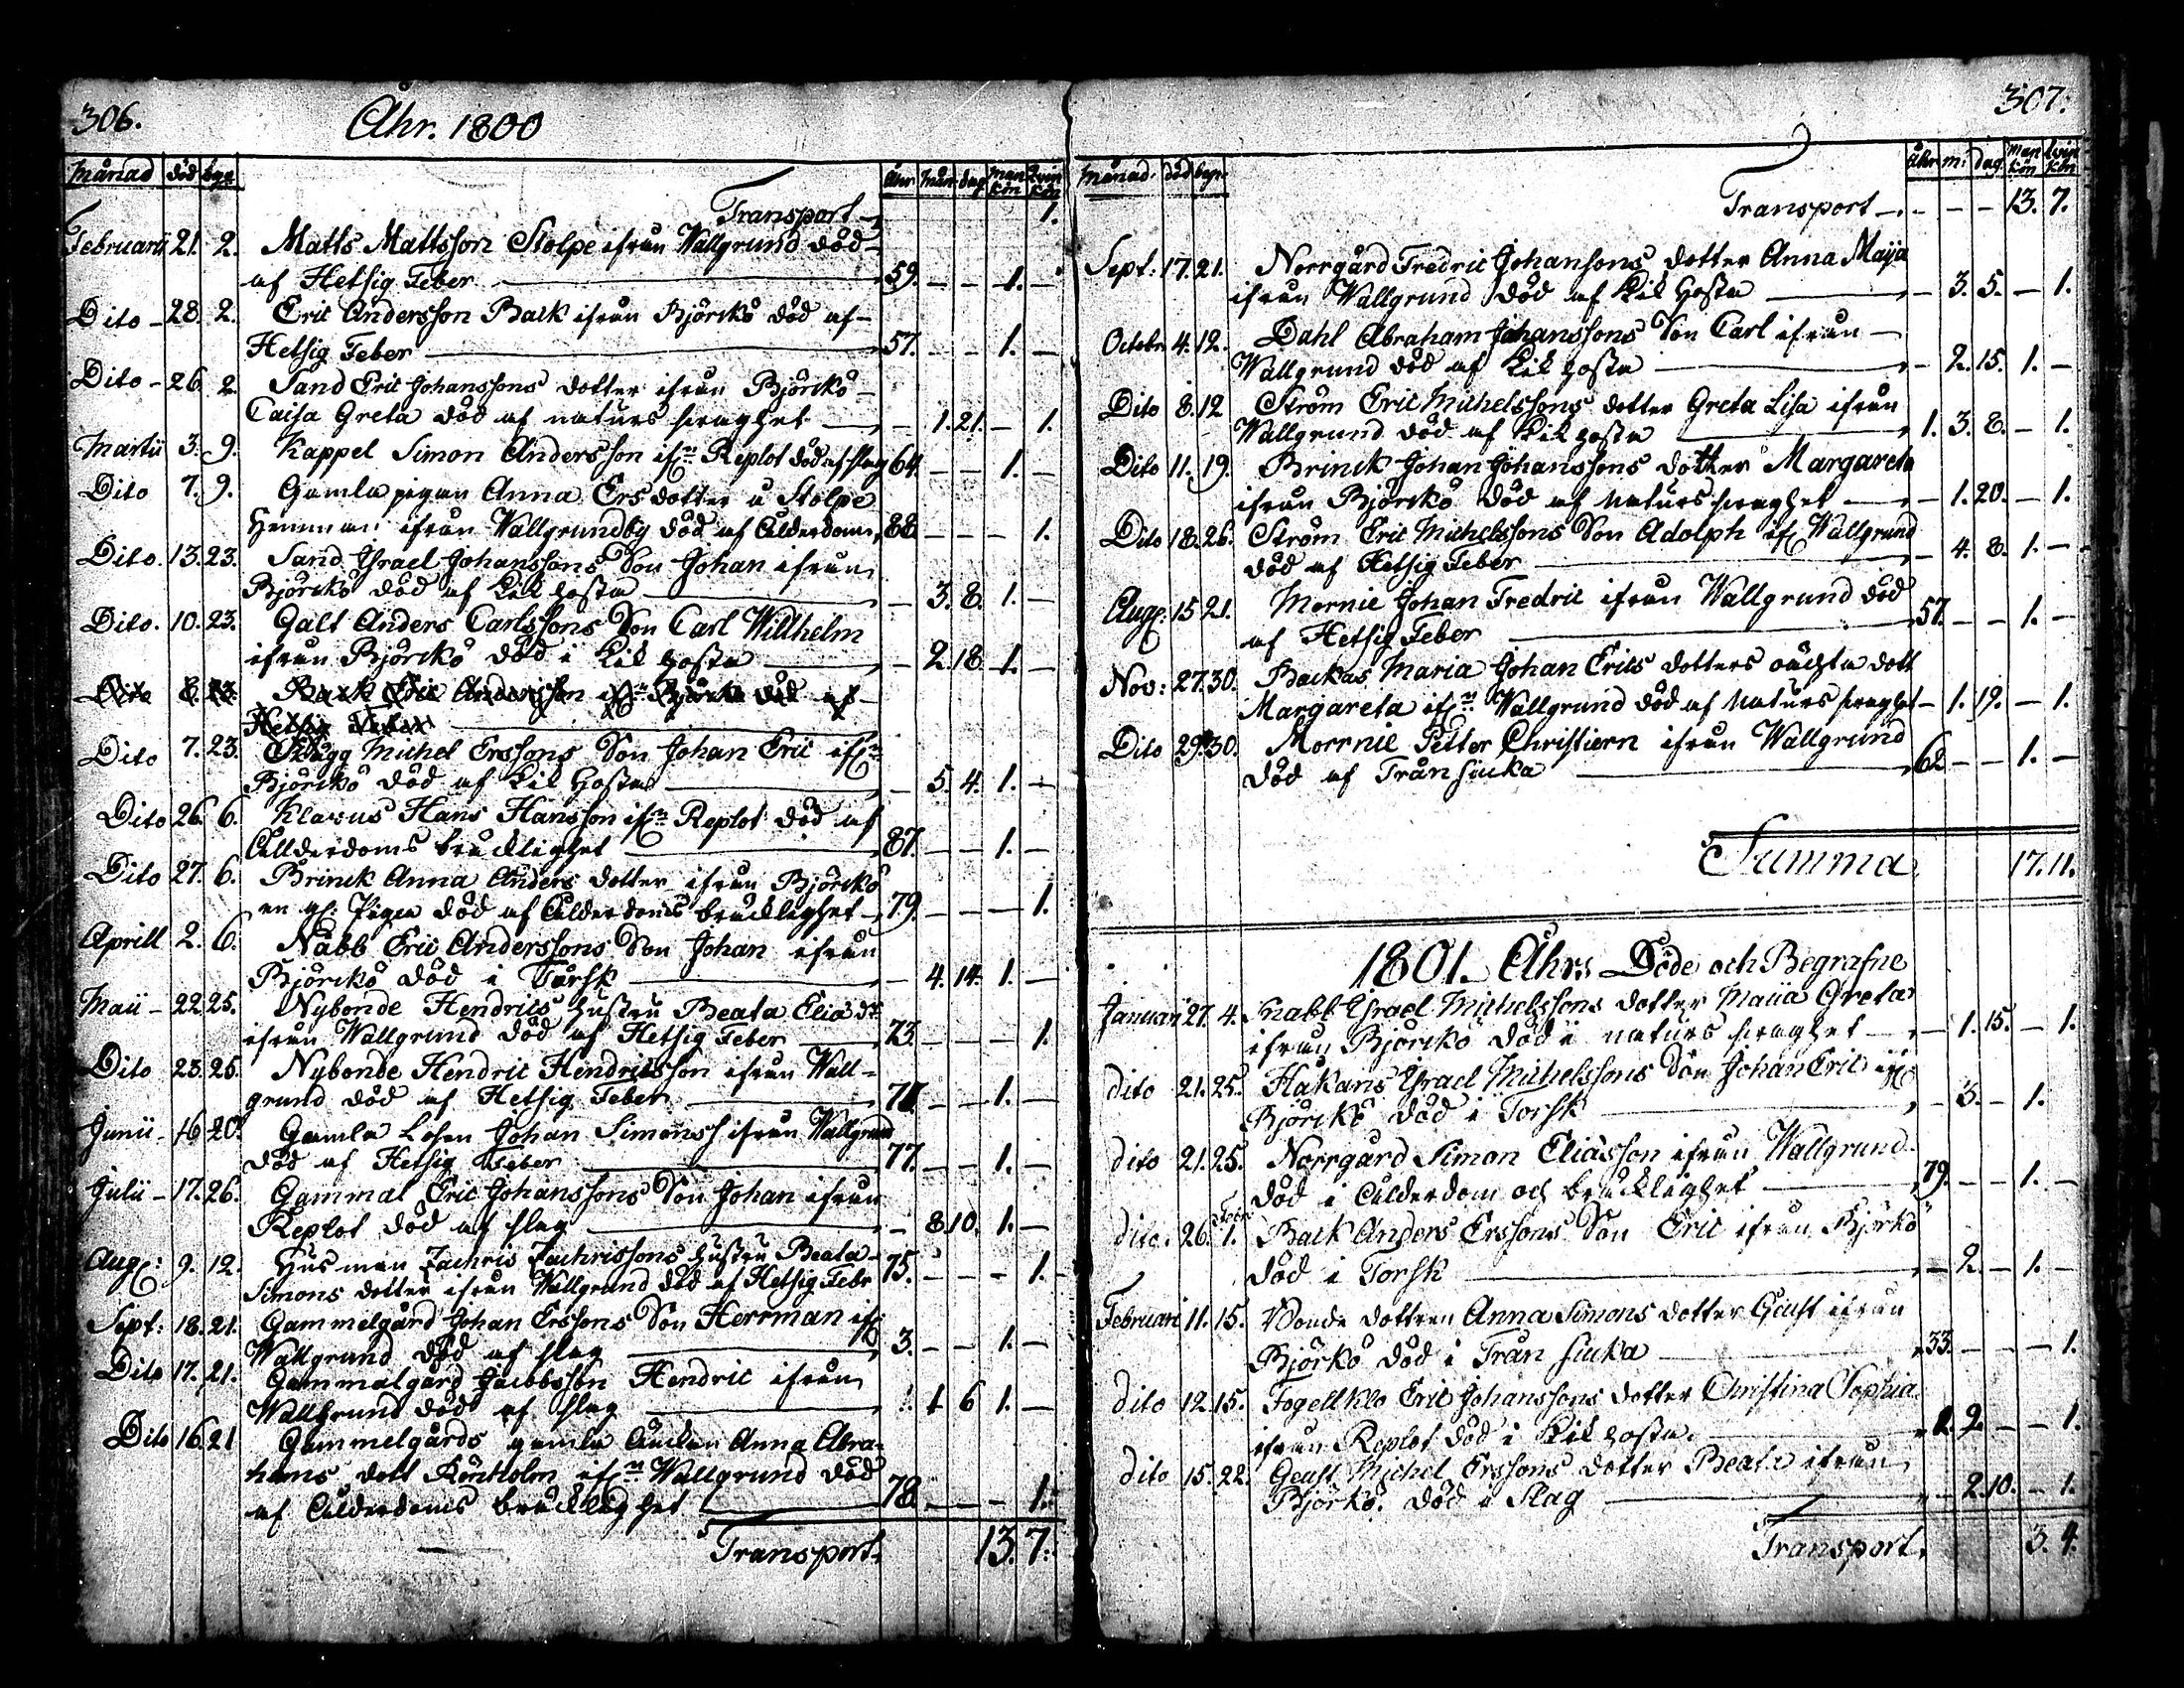 306.
Åhr. 1800
Månad död beg. Åhr Mån dag Man kön Qvin kön
Transport 1.
Februarii 21. 2. Matts Mattsson Stolpe ifrån Wallgrund död
af Hetsig Feber 59. — — 1. —
Dito 28. 2. Eric Andersson Back ifrån Björckö död af
Hetsig Feber 57. — — 1. —
Dito 26. 2. Sand Eric Johanssons dotter ifrån Björckö
Caisa Greta död af naturs swaghet — 1. 21. — 1.
Martii 3. 9. Kappel Simon Andersson ifrn Replot död af slag 64. — — 1. —
Dito 7. 9. Gamla pigan Anna Ersdotter å Stolpe
Hemman ifrån Wallgrundby död af Ålderdom 88. — — — 1.
Dito. 13. 23. Sand Israel Johanssons Son Johan ifrån
Björckö död af Kikhosta — 3. 8. 1. —
Dito. 10. 23. Galt Anders Carlssons Son Carl Willhelm
ifrån Björckö död i Kikhosta — 2. 18. 1. —
Dito 8. 23. Back Eric Andersson ifrn Björckö död af
Hetsig Feber
Dito 7. 23. Skägg Michel Erssons Son Johan Eric ifrn
Björckö död af Kik Hosta — 5. 4. 1. —
Dito 26. 6. Klavus Hans Hansson ifrn Replot död af
Ållderdoms bräcklighet 87. — — 1. —
Dito 27. 6. Brinck Anna Anders dotter ifrån Björckö
en gl. Piga död af Ålderdoms bräcklighet 79. — — — 1.
Aprill 2. 6. Nabb Eric Anderssons Son Johan ifrån
Björckö död i Torsk — 4. 14. 1. —
Maii 22. 25. Nybonde Hendrics hustru Beata Elia dr
ifrån Wallgrund död af Hetsig Feber 73. — — — 1.
Dito 23. 25. Nybonde Hendric Hendricsson ifrån Wall-
grund död af Hetsig Feber — — 1. —
Junii 16 20. Gamla Losen Johan Simonss ifrån Wallgrund
död af Hetsig Feber 77. — — 1. —
Julii 17. 26. Gammal Eric Johanssons Son Johan ifrån
Replot död af slag — 8. 10. 1. —
Aug: 9. 12. Hus man Zachris Zachrissons hustru Beata
Simons dotter ifrån Wallgrund död af Hetsig Febr 75. — — — 1.
Sept: 18. 21. Gammelgård Johan Erssons Son Herrman ifr
Wallgrund död af slag 3. — — 1. —
Dito 17. 21. Gammalgård Jacobsson Hendric ifrån
Wallgrund död af slag 1 6 1. —
Dito 16. 21 Gammelgårds gamla Änckan Anna Abra-
hams dott Rönholm ifrn Wallgrund död
af Ålderdoms bräcklighet 78. — — — 1.
Transport. 13. 7.
307.
Månad. död beg. Åhr m: dag Man kön Qvin kön
Transport — — — 13. 7.
Sept: 17. 21. Norrgård Fredric Johansons dotter Anna Maija
ifrån Wallgrund död af Kik Hosta — 3. 5. — 1.
Octobr 4. 12. Dahl Abraham Johanssons Son Carl ifrån
Wallgrund död af Kik hosta — 2. 15. 1. —
Dito 8. 12 Ström Eric Michelssons dotter Greta Lisa ifrån
Wallgrund död af Kik hosta 1. 3. 8. — 1.
Dito 11. 19. Brinck Johan Johanssons dotter Margareta
ifrån Björckö död af Naturs swaghet — 1. 20. — 1.
Dito 18. 26. Ström Eric Michelssons Son Adolph ifr Wallgrund
död af Hetsig Feber — 4. 8. 1. —
Aug: 15 21. Mornie Johan Fredric ifrån Wallgrund död
af Hetsig Feber 57. — — 1. —
Nov: 27. 30. Backas Maria Johan Erics dotters oächta dott
Margareta ifrn Wallgrund död af Naturs swaghet — 1. 19. — 1.
Dito 29. 30. Morrnie Petter Christiern ifrån Wallgrund
död af Trånsiuka 62 — — 1. —
Summa 17. 11.
1801. Åhrs Döde och Begrafne
Januarii 27. 4. Knabb Israel Michelssons dotter Maija Greta
ifrån Björckö död i naturs swaghet — 1. 15. — 1.
dito 21. 25. Hakans Israel Michelssons Son Johan Eric ifr
Björckö död i Torsk — 3. — 1.
dito 21. 25. Norrgård Simon Eliasson ifrån Wallgrund
död i Ålderdom och bräcklighet 79. — — 1. —
dito. 26. Febr 1. Back Anders Erssons Son Eric ifrån Björkö
död i Torsk — 2. — 1. —
Februari 11. 15. Bonde dottren Anna Simons dotter Geust ifrån
Björkö död i Trån siuka 33. — — — 1.
dito 12. 15. Fogellklo Eric Johanssons dotter Christina Sophia
ifrån Replot död i Kik hosta. 2. — — 1.
dito 15. 22. Geust Michel Erssons dotter Beata ifrån
Björkö. död i Slag — 2. 10. — 1.
Transport. 3. 4.